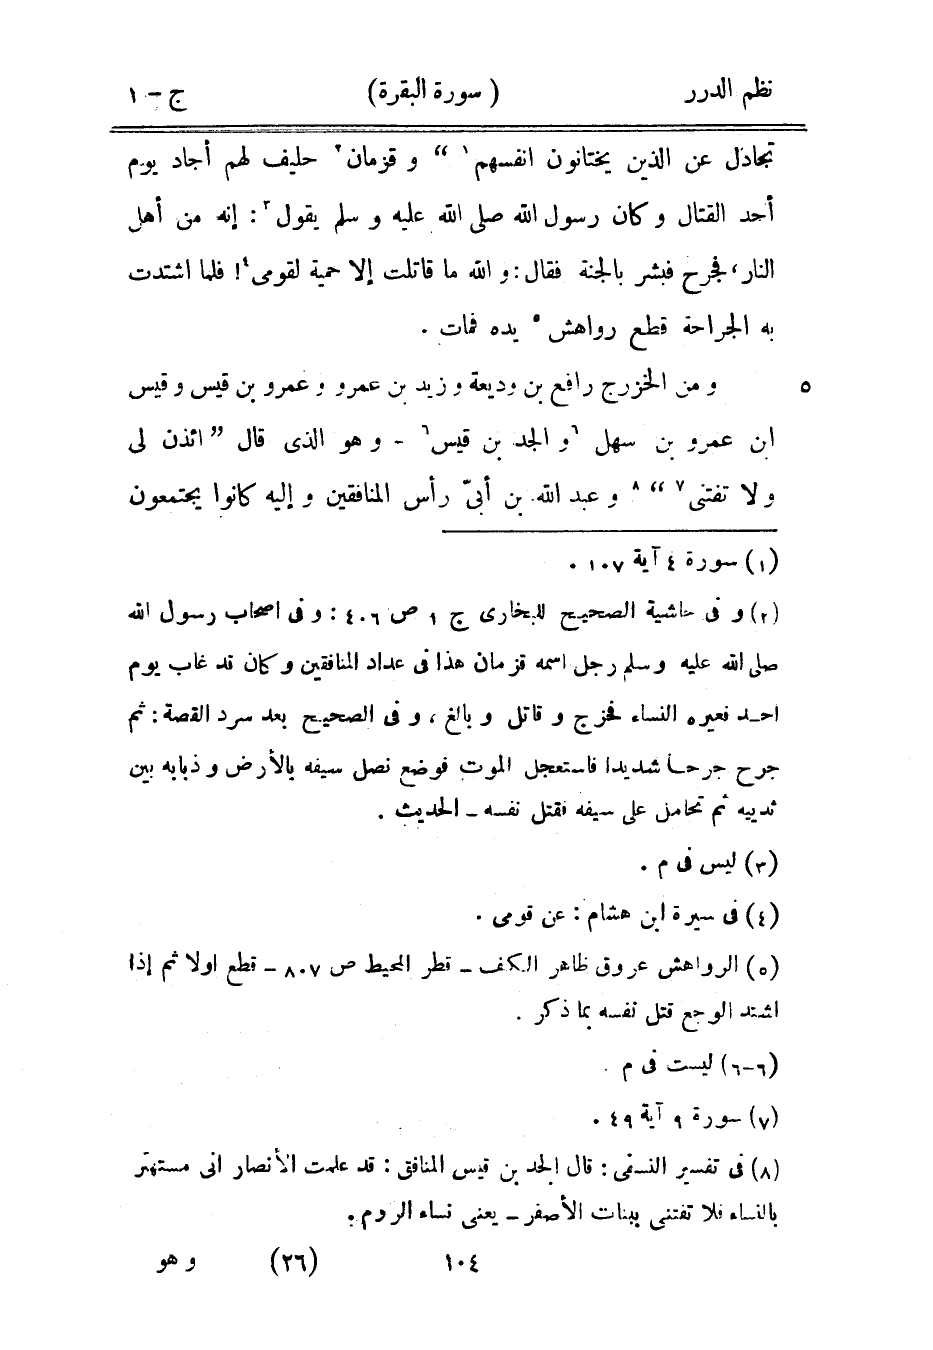 نظم الدرر (سورة البقرة) ج - ١
تجادل عن الذين يختانون انفسهم ١ “ و قزمان ٢ حليف لهم أجاد يوم
أحد القتال و كان رسول الله صلى الله عليه و سلم يقول ٣ : إنه من أهل
النار، فجرح فبشر بالجنة فقال : و الله ما قاتلت إلا حمية لقومى ٤ ! فلما اشتدت
به الجراحة قطع رواهش ٥ يده فمات .
٥ و من الخزرج رافع بن وديعة و زيد بن عمرو و عمرو بن قيس و قيس
ابن عمرو بن سهل ٦ و الجد بن قيس ٦ - و هو الذى قال ” ائذن لى
و لا تفتنى ٧ “ ٨ و عبد الله بن أبىّ رأس المنافقين و إليه كانوا يجتمعون
(١) سورة ٤ آية ١٠٧ .
(٢) و فى حاشية الصحيح للبخارى ج ١ ص ٤٠٦ : و فى اصحاب رسول الله
صلى الله عليه و سلم رجل اسمه قزمان هذا فى عداد المنافقين و كان قد غاب يوم
احد فعيره النساء فخرج و قاتل و بالغ ، و فى الصحيح بعد سرد القصة : ثم
جرح جرحا شديدا فاستعجل الموت فوضع نصل سيفه بالأرض و ذبابه بين
ثدييه ثم تحامل على سيفه فقتل نفسه - الحديث .
(٣) ليس فى م .
(٤) فى سيرة ابن هشام : عن قومى .
(٥) الرواهش عروق ظاهر الكف - قطر المحيط ص ٨٠٧ - قطع اولا ثم إذا
اشتد الوجع قتل نفسه بما ذكر .
(٦-٦) ليست فى م .
(٧) سورة ٩ آية ٤٩ .
(٨) فى تفسير النسفى : قال الجد بن قيس المنافق : قد علمت الأنصار انى مستهتر
بالنساء فلا تفتنى ببنات الأصفر - يعنى نساء الروم .
١٠٤ (٢٦) و هو